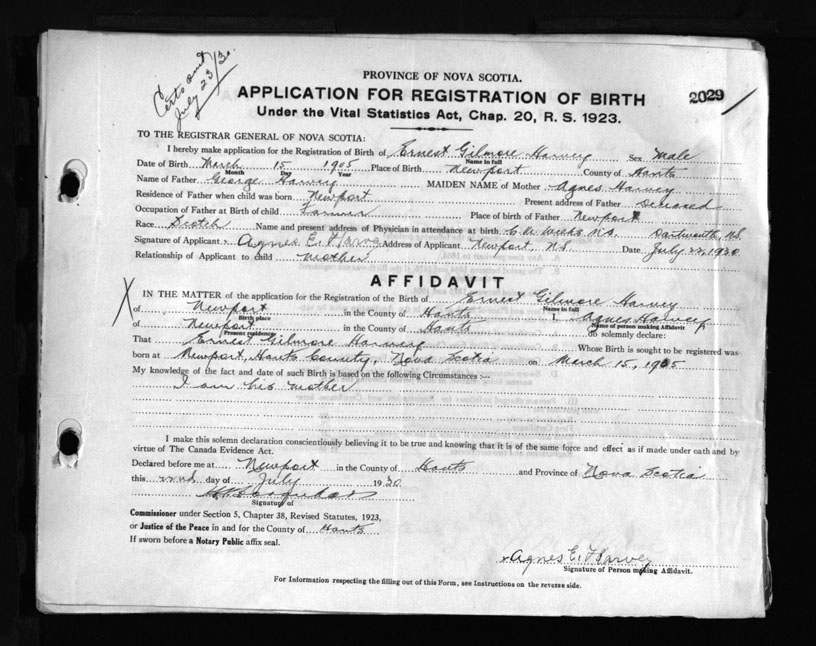 Certs and
July 23/30.
PROVINCE OF NOVA SCOTIA.
APPLICATION FOR REGISTRATION OF BIRTH
2029
Under the Vital Statistics Act, Chap. 20, R. S. 1923.
TO THE REGISTRAR GENERAL OF NOVA SCOTIA:
I hereby make application for the Registration of Birth of Ernest Gilmore Harvey Sex Male
Name in full
Date of Birth March 15 1905 Place of Birth Newport County of Hants
Month Day Year
Name of Father George Harvey MAIDEN NAME of Mother Agnes Harvey
Residence of Father when child was born Newport Present address of Father Deceased
Occupation of Father at Birth of child Farmer Place of birth of Father Newport
Race Scotch Name and present address of Physician in attendance at birth Dartmouth, N.S.
Signature of Applicant Agnes E. Harvey Address of Applicant Newport, N.S. Date July 22, 1930
Relationship of Applicant to child mother
AFFIDAVIT
IN THE MATTER of the application for the Registration of the Birth of Ernest Gilmore Harvey
Name in full
X
of Newport in the County of Hants I, Agnes Harvey,
Birth place Name of person making Affidavit
of Newport in the County of Hants do solemnly declare:
Present residence
That Ernest Gilmore Harvey Whose Birth is sought to be registered was
born at Newport, Hants County, Nova Scotia on March 15, 1905
My knowledge of the fact and date of such Birth is based on the following Circumstances :—
I am his mother
I make this solemn declaration conscientiously believing it to be true and knowing that it is of the same force and effect as if made under oath and by
virtue of The Canada Evidence Act.
Declared before me at Newport in the County of Hants and Province of Nova Scotia
this 22nd day of July 1930
Signature of
Commissioner under Section 5, Chapter 38, Revised Statutes, 1923,
or Justice of the Peace in and for the County of Hants
If sworn before a Notary Public affix seal.
x Agnes E. Harvey
Signature of Person making Affidavit.
For Information respecting the filling out of this Form, see Instructions on the reverse side.